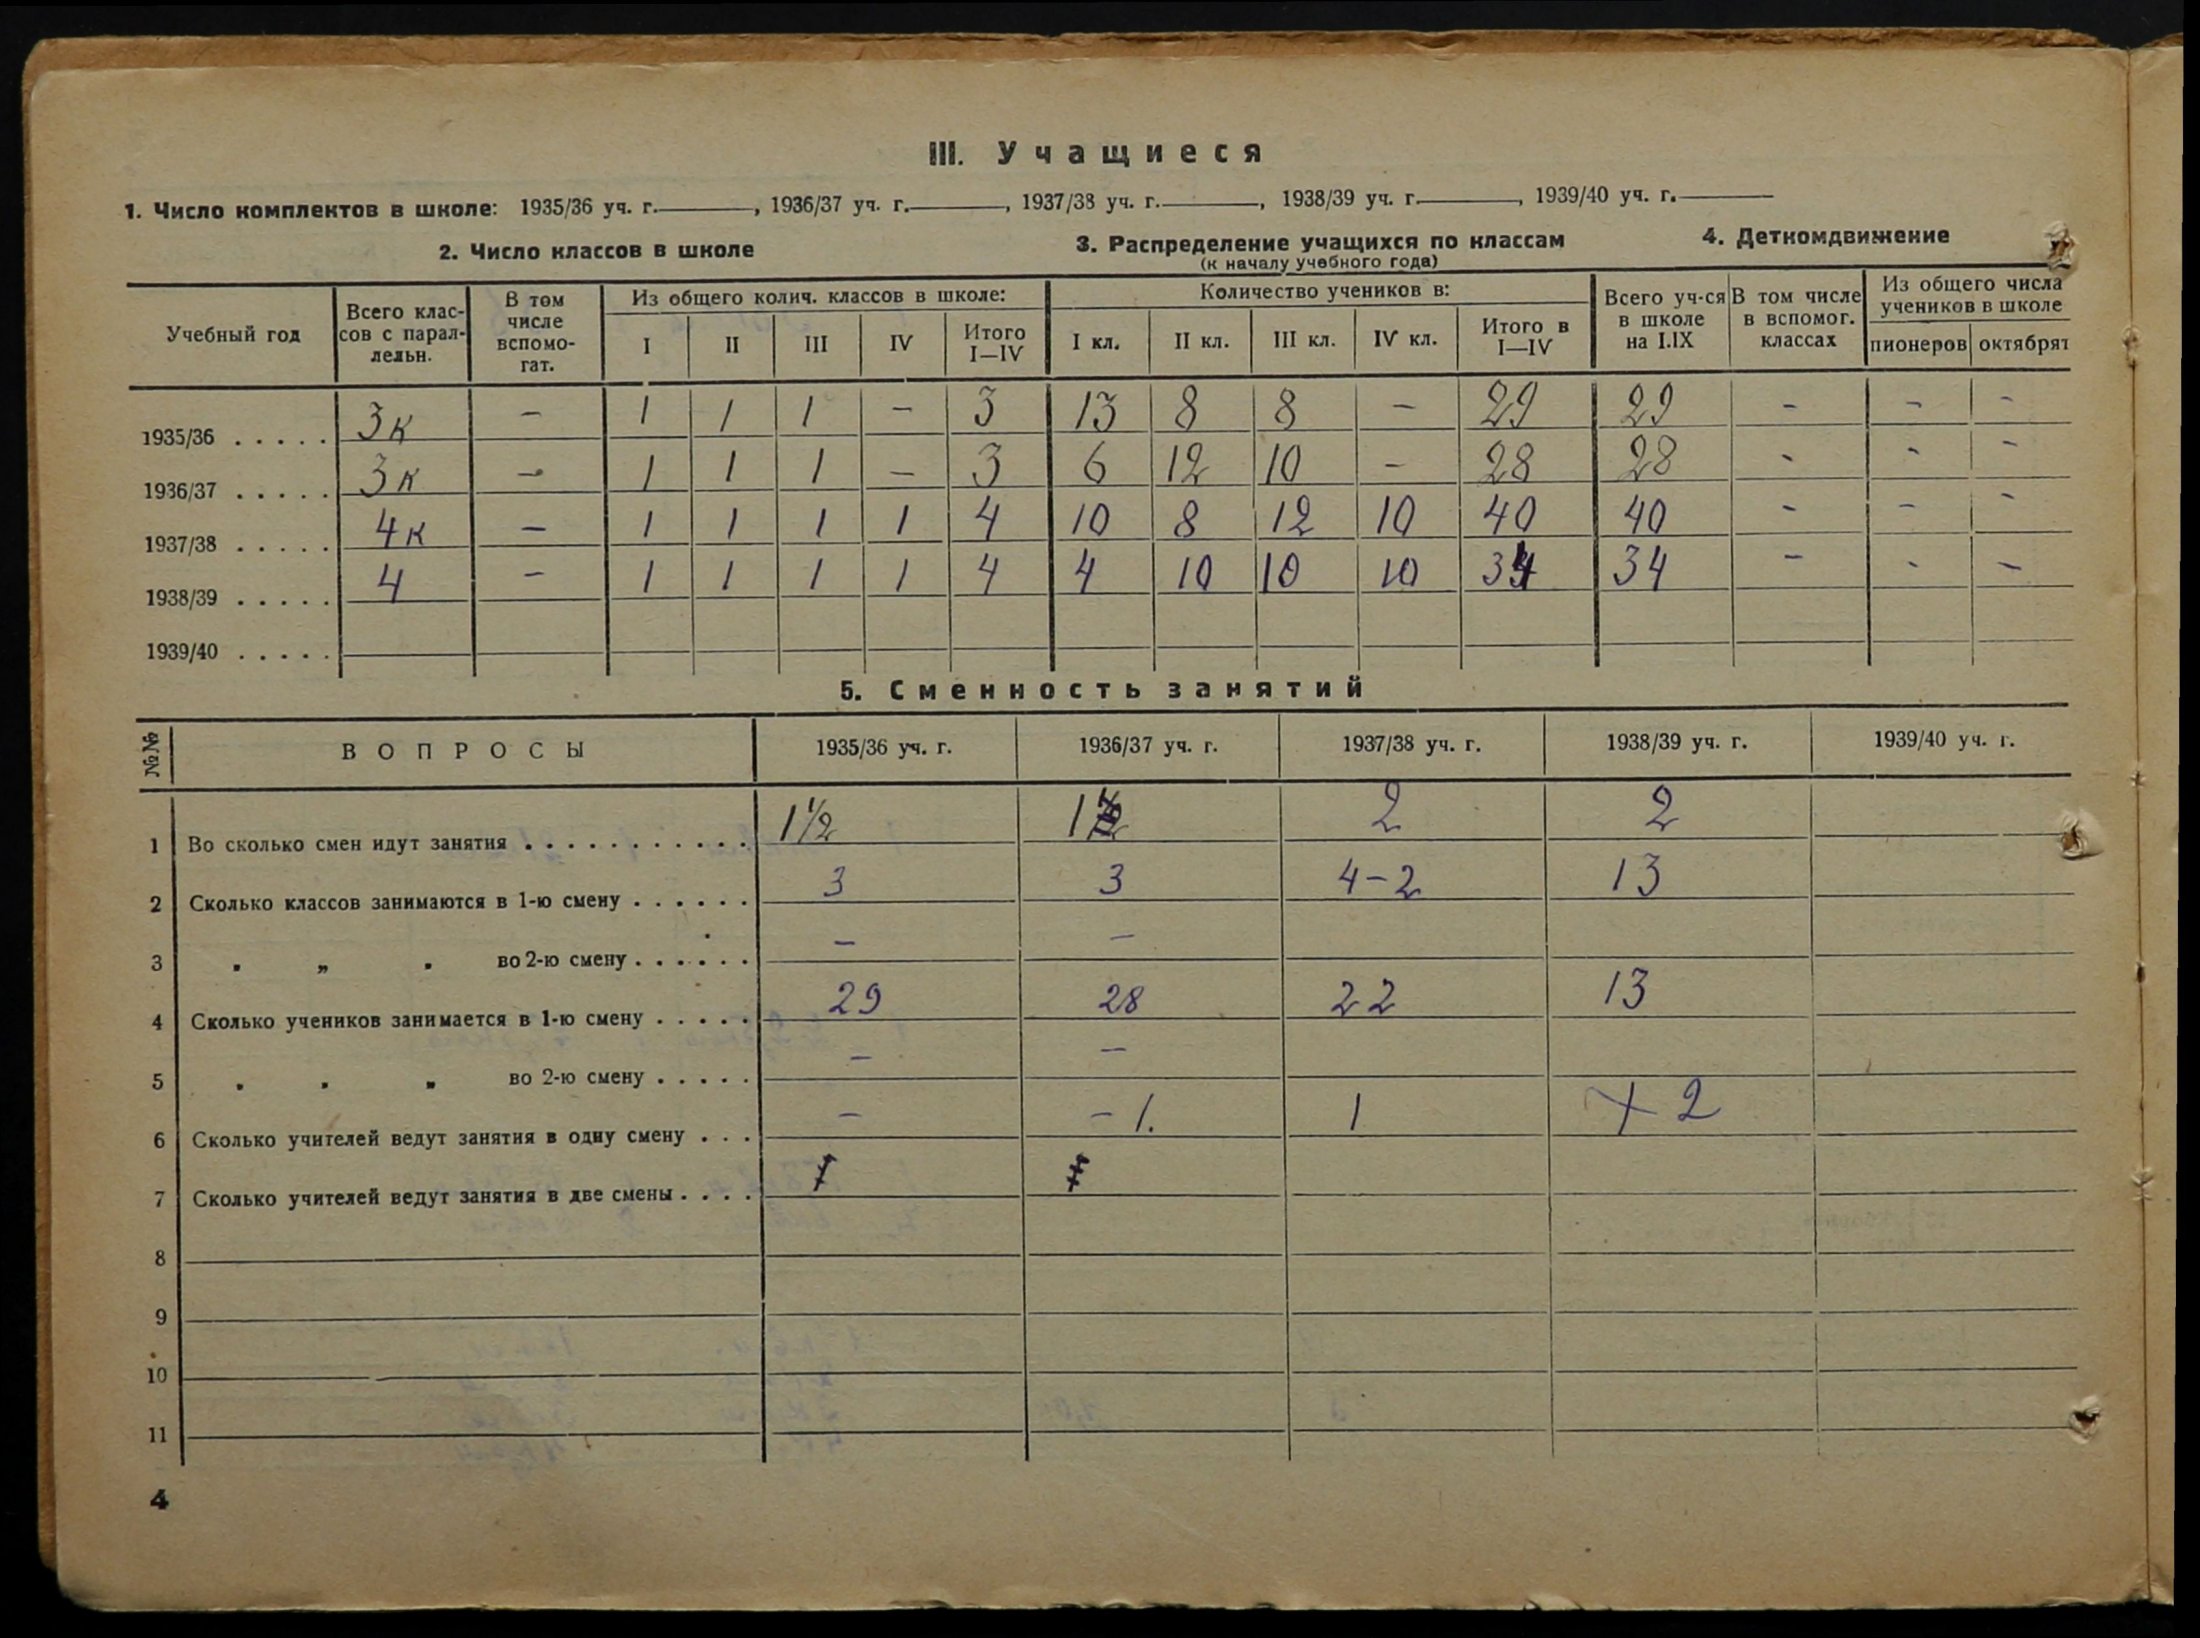 III. Учащиеся
1. Число комплектов в школе: 1935/36 уч. г. ——, 1936/37 уч. г. ——, 1937/38 уч. г. ——, 1938/39 уч. г. ——, 1939/40 уч. г. ——
2. Число классов в школе 3. Распределение учащихся по классам 4. Деткомдвижение
(к началу учебного года)
Учебный год Всего классов с параллельн. В том числе вспомогат. Из общего колич. классов в школе: Количество учеников в: Всего уч-ся в школе на I.IX В том числе в вспомог. классах Из общего числа учеников в школе
I II III IV Итого I—IV I кл. II кл. III кл. IV кл. Итого в I—IV пионеров октябрят
1935/36 . . . . . 3к - 1 1 1 - 3 13 8 8 - 29 29 - - -
1936/37 . . . . . 3к - 1 1 1 - 3 6 12 10 - 28 28 - - -
1937/38 . . . . . 4к - 1 1 1 1 4 10 8 12 10 40 40 - - -
1938/39 . . . . . 4 - 1 1 1 1 4 4 10 10 10 34 34 - - -
1939/40 . . . . .
5. Сменность занятий
№№ ВОПРОСЫ 1935/36 уч. г. 1936/37 уч. г. 1937/38 уч. г. 1938/39 уч. г. 1939/40 уч. г.
1 Во сколько смен идут занятия . . . . . . . . . . . 1 1/2 1 2 2
2 Сколько классов занимаются в 1-ю смену . . . . . . 3 3 4-2 13
3 " „ " во 2-ю смену . . . . . . - -
4 Сколько учеников занимается в 1-ю смену . . . . . 29 28 22 13
5 " " " во 2-ю смену . . . . . - -
6 Сколько учителей ведут занятия в одну смену . . . - - 1. 1 2
7 Сколько учителей ведут занятия в две смены . . . .
8
9
10
11
4